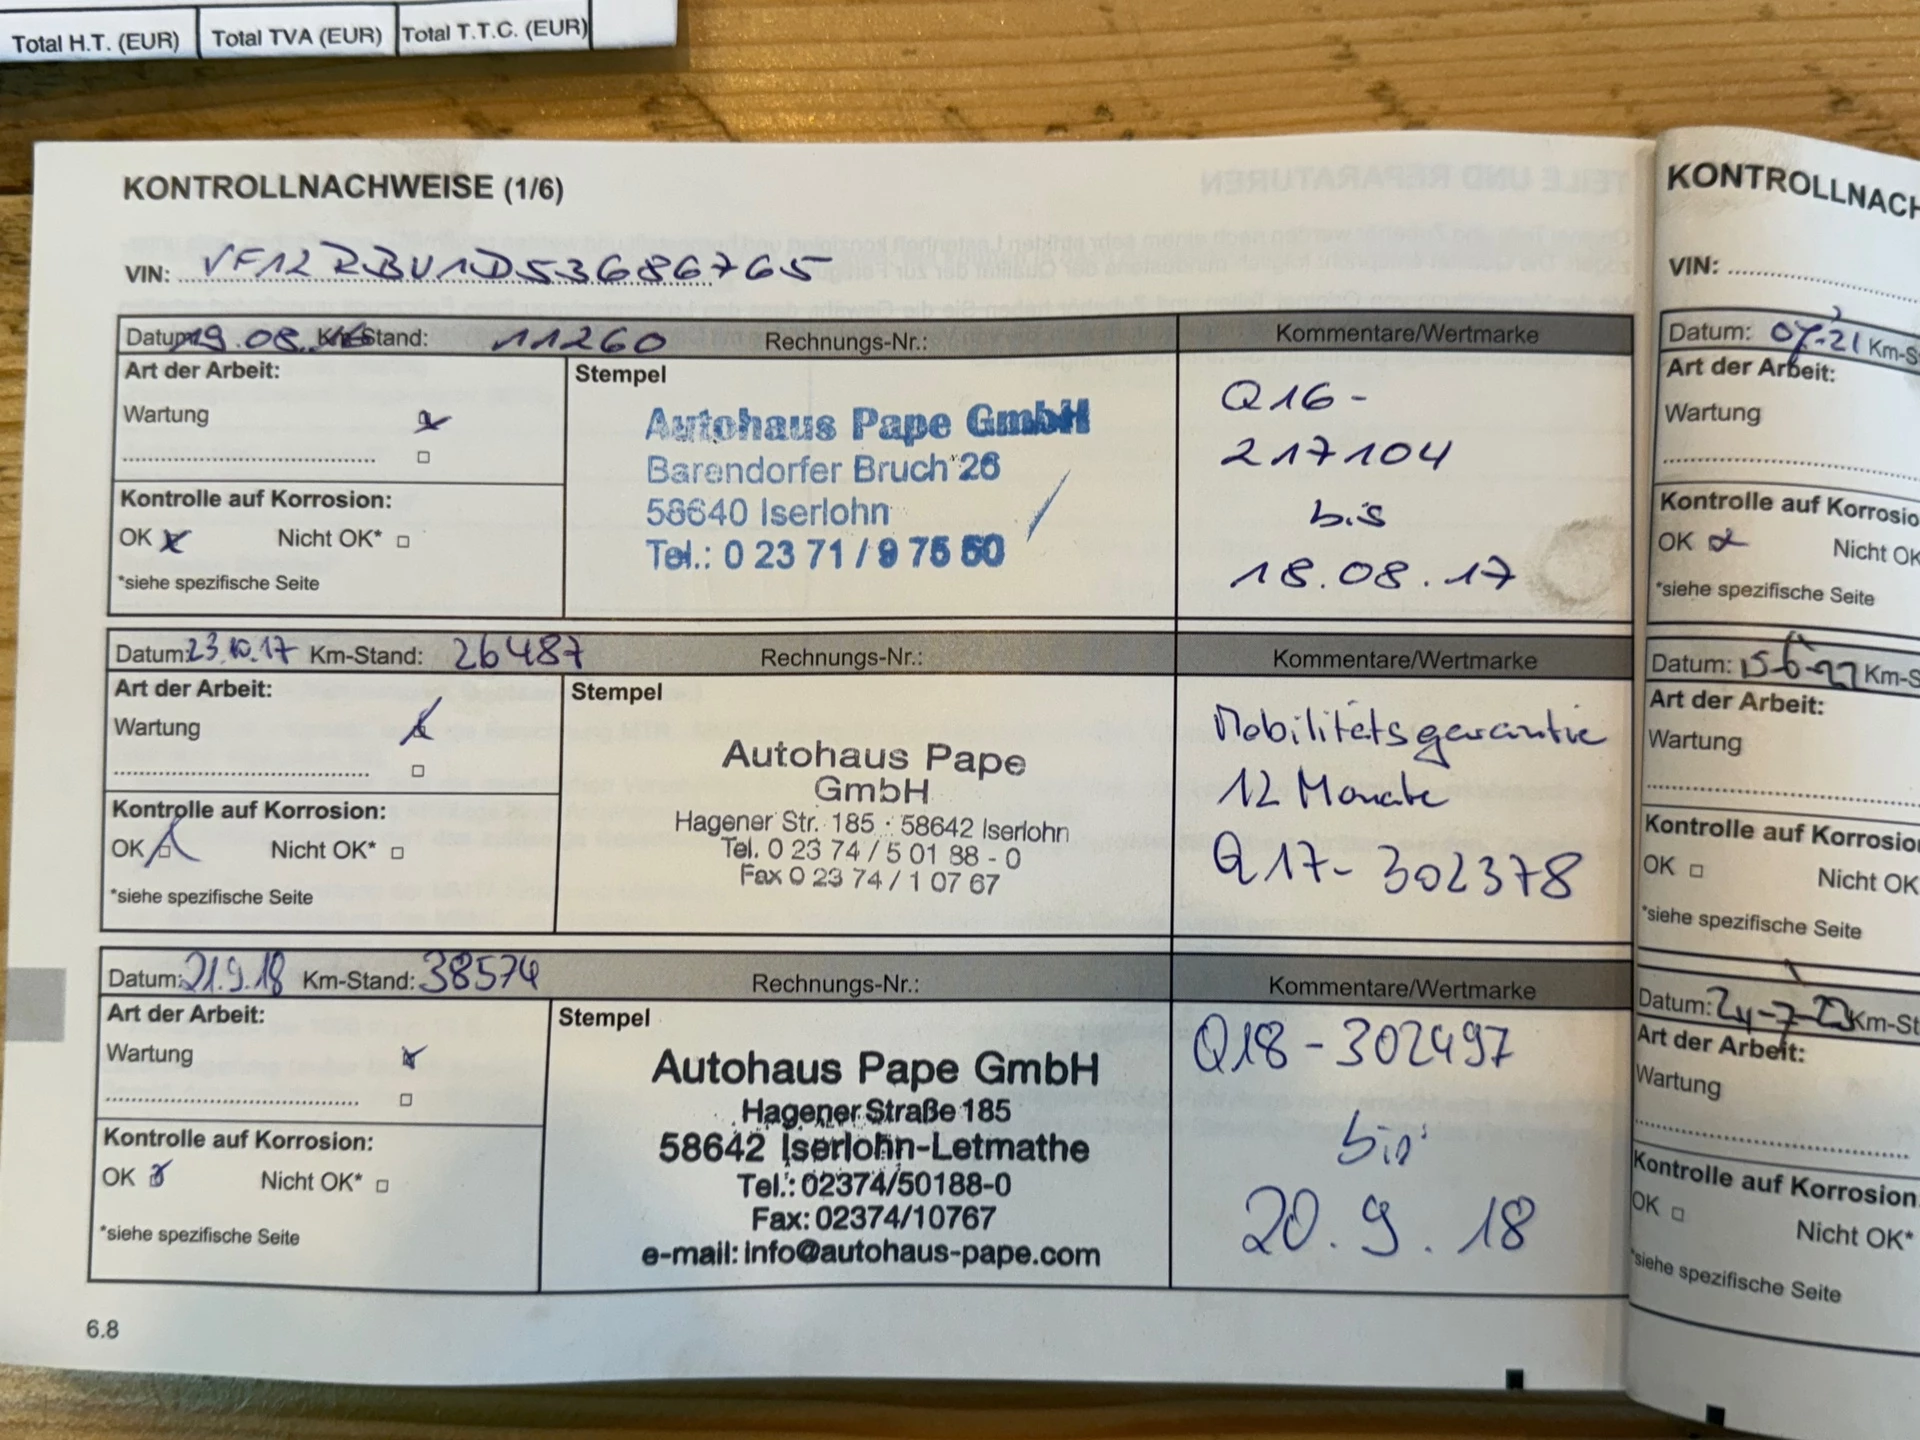 Total H.T. (EUR) Total TVA (EUR) Total T.T.C. (EUR)
KONTROLLNACHWEISE (1/6)
VIN: VF12RBU1D53686765
Datum: 19.08.16 Km-Stand: 11260 Rechnungs-Nr.: Kommentare/Wertmarke
Art der Arbeit:
Wartung
Kontrolle auf Korrosion:
OK Nicht OK*
*siehe spezifische Seite
Stempel
Autohaus Pape GmbH
Barendorfer Bruch 26
58640 Iserlohn
Tel.: 0 23 71 / 9 75 50
Q16-
217104
bis
18.08.17
Datum: 23.10.17 Km-Stand: 26487 Rechnungs-Nr.: Kommentare/Wertmarke
Art der Arbeit:
Wartung
Kontrolle auf Korrosion:
OK Nicht OK*
*siehe spezifische Seite
Stempel
Autohaus Pape
GmbH
Hagener Str. 185 · 58642 Iserlohn
Tel. 0 23 74 / 5 01 88 - 0
Fax 0 23 74 / 1 07 67
Mobilitätsgarantie
12 Monate
Q17-302378
Datum: 21.9.18 Km-Stand: 38574 Rechnungs-Nr.: Kommentare/Wertmarke
Art der Arbeit:
Wartung
Kontrolle auf Korrosion:
OK Nicht OK*
*siehe spezifische Seite
Stempel
Autohaus Pape GmbH
Hagener Straße 185
58642 Iserlohn-Letmathe
Tel.: 02374/50188-0
Fax: 02374/10767
e-mail: info@autohaus-pape.com
Q18-302497
bis
20.9.18
6.8
KONTROLLNACH
VIN:
Datum: 07.21 Km-S
Art der Arbeit:
Wartung
Kontrolle auf Korrosio
OK Nicht OK
*siehe spezifische Seite
Datum: 15-6-22 Km-S
Art der Arbeit:
Wartung
Kontrolle auf Korrosio
OK Nicht OK
*siehe spezifische Seite
Datum: 24-7-23 Km-St
Art der Arbeit:
Wartung
Kontrolle auf Korrosion
OK Nicht OK*
*siehe spezifische Seite